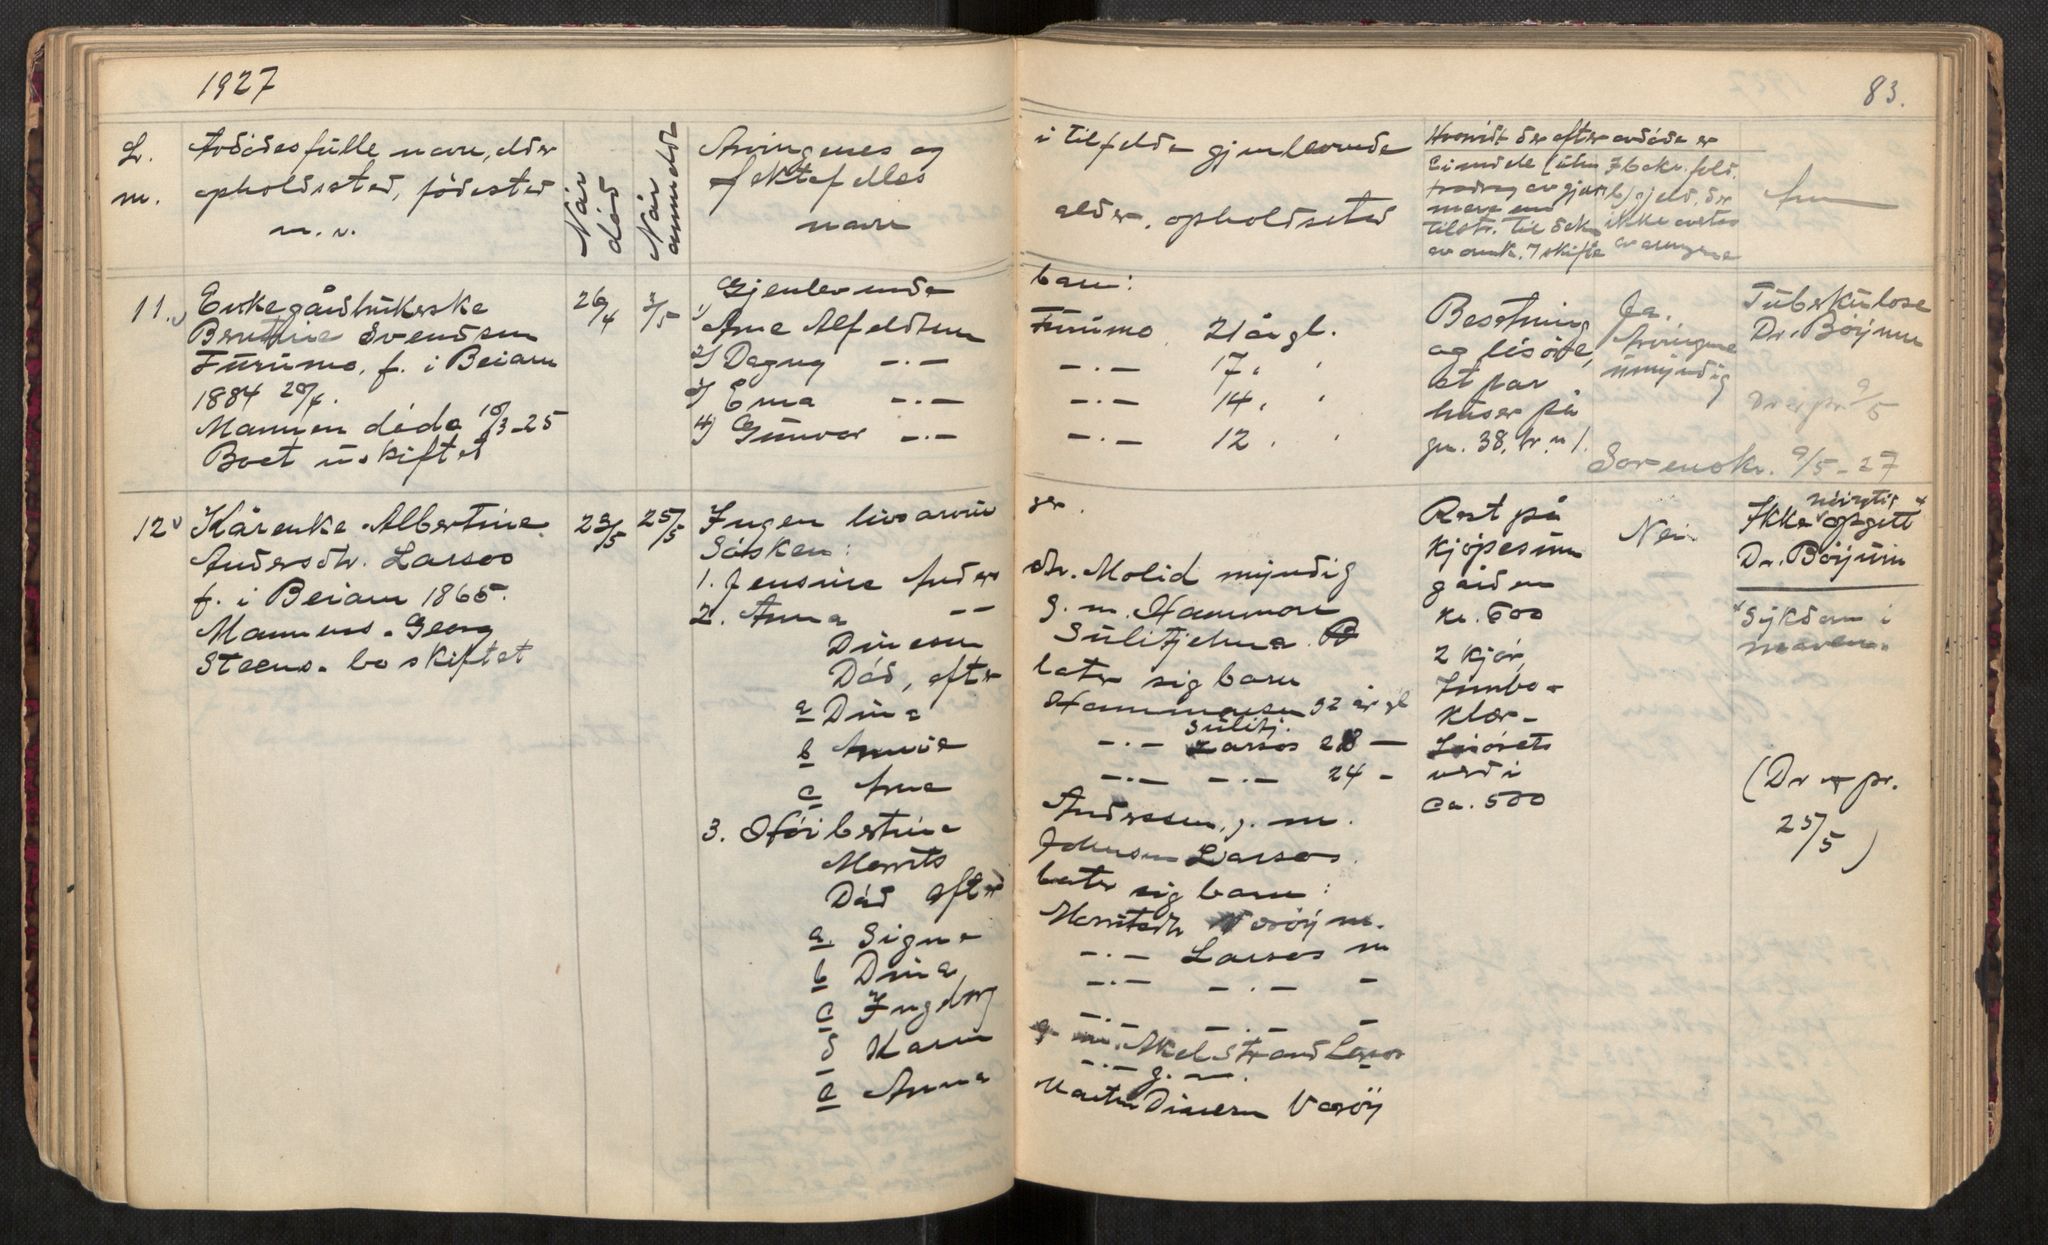 1927
83.
L.
m.
Avdødes fulle navn, eller
opholdssted, fødested
m. v.
Når
død
Når
anmeldt
Arvingenes og
f ektefelles
navn
i tilfelde gjenlevende
alder. opholdssted
Hvorvidt der efter avdøde er
Eiendele (uten
mere enn
tilstr. til dekn
av omk. v/skifte
ikke overtas
av arvingene
Anm
11.
Enkegårdbrukerske
Berntine Svendsen
Furumo, f. i Beiarn
1884 20/4.
Mannen døde 10/3-25
Boet uskiftet
26/4
3/5
Gjenlevende
1) Arne Alfeldsen
2) Dagny -.-
3) Erna -.-
4) Gunvor -.-
barn:
Furumo 21 år gl.
-.- 17. '
-.- 14. '
-.- 12. '
Besetning
og løsøre,
et par
huser på
gn. 38, br. n 1.
Ja.
Arvingene
umyndig
Tuberkulose
Dr. Böyum
9/5
Sorenskr. 9/5-27
12
Kårenke Albertine
Andersdtr. Larsos
f. i Beiarn 1865.
Mannens. Georg
Steens. bo skiftet
23/5
25/5
Ingen livsarvin
Søsken:
1. Jensine Anders
2. Anna --
Dinesen
Død, efter
a Dina
b Annie
c Arne
3. Hóibertine
Morrits
Død efter
a. Signe
b Dina
c Ingeborg
d Karen
e Anna
ger.
dtr. Molid myndig
g. m. Hammon
Sulitjelma.
later sig barn
32 år gl
Sulitj.
-.- Larsos 28 -
-.- -.- 24 -
Anderssen, g. m.
Johnsen Larsos.
later sig barn:
Morritsdtr Værøy m.
-.- Larsos m
-.- -.- -
-.- -.- -
g. m. Aksel Strand Larsos
-.- g. m.
Martin Dinesen Værøy
Rest på
kjøpesum
gården
kr. 600
2 kjør,
Innbo-
klær-
Løsörets
verdi
ca. 500
Nei
nöigtig
Ikke opgitt
Dr. Böyum
Sykdom i
maven.
(Dr er pr.
25/5)